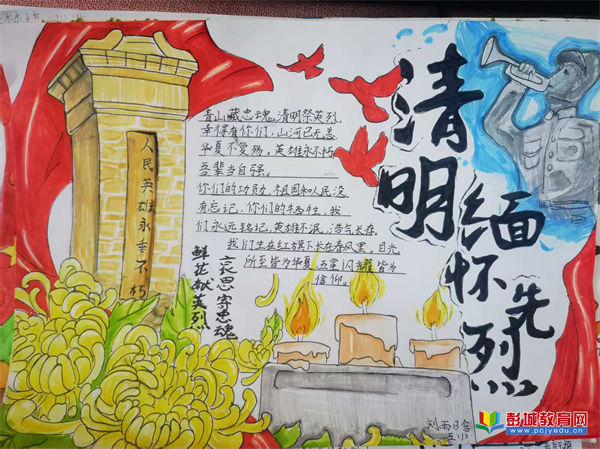 清明
缅怀先烈
青山藏忠魂,清明祭英烈.
幸得有你们,山河已无恙
华夏不爱殇。英雄永不朽
吾辈当自强。
你们的功勋,祖国和人民没
有忘记,你们的牺牲,我
们永远铭记,英雄不泯,浩气长存,
我们生在红旗下长在春风里,目光
所至皆为华夏,五星闪耀皆为
信仰。
人民英雄永幸不朽
哀思寄忠魂
鲜花献英烈
彭城教育网
www.pcjyedu.cn